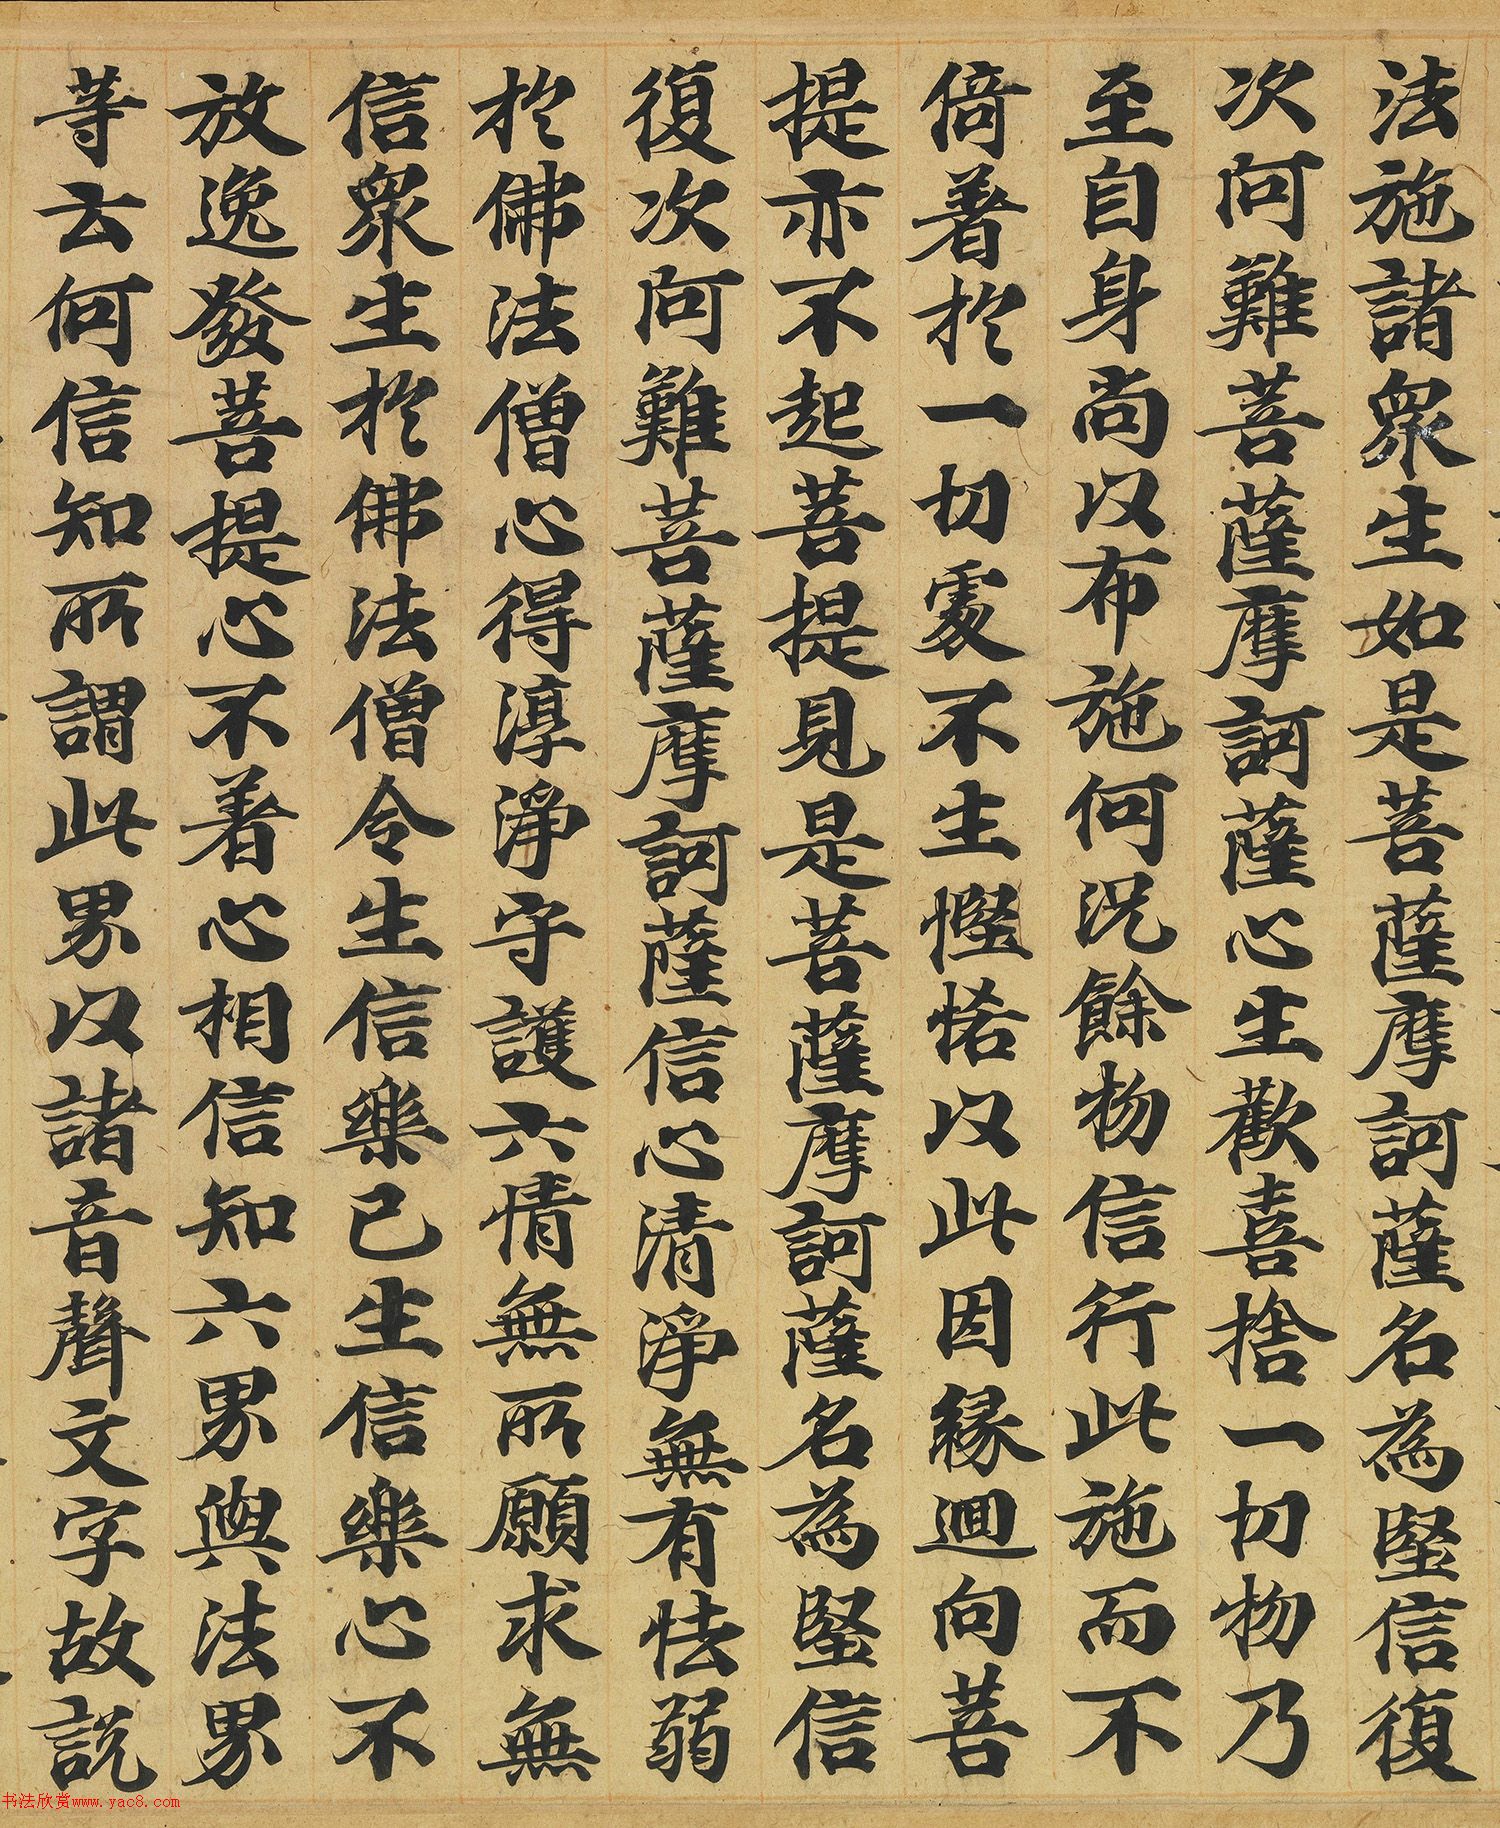 法施諸衆生如是菩薩摩訶薩名為堅信復
次阿難菩薩摩訶薩心生歡喜捨一切物乃
至自身尚以布施何況餘物信行此施而不
倚著於一切處不生慳悋以此因縁迴向菩
提亦不起菩提見是菩薩摩訶薩名為堅信
復次阿難菩薩摩訶薩信心清淨無有怯弱
於佛法僧心得淳淨守護六情無所願求無
信衆生於佛法僧令生信樂已生信樂心不
放逸發菩提心不著心相信知六界與法界
等云何信知所謂此界以諸音聲文字故説
书法欣赏www.yac8.com